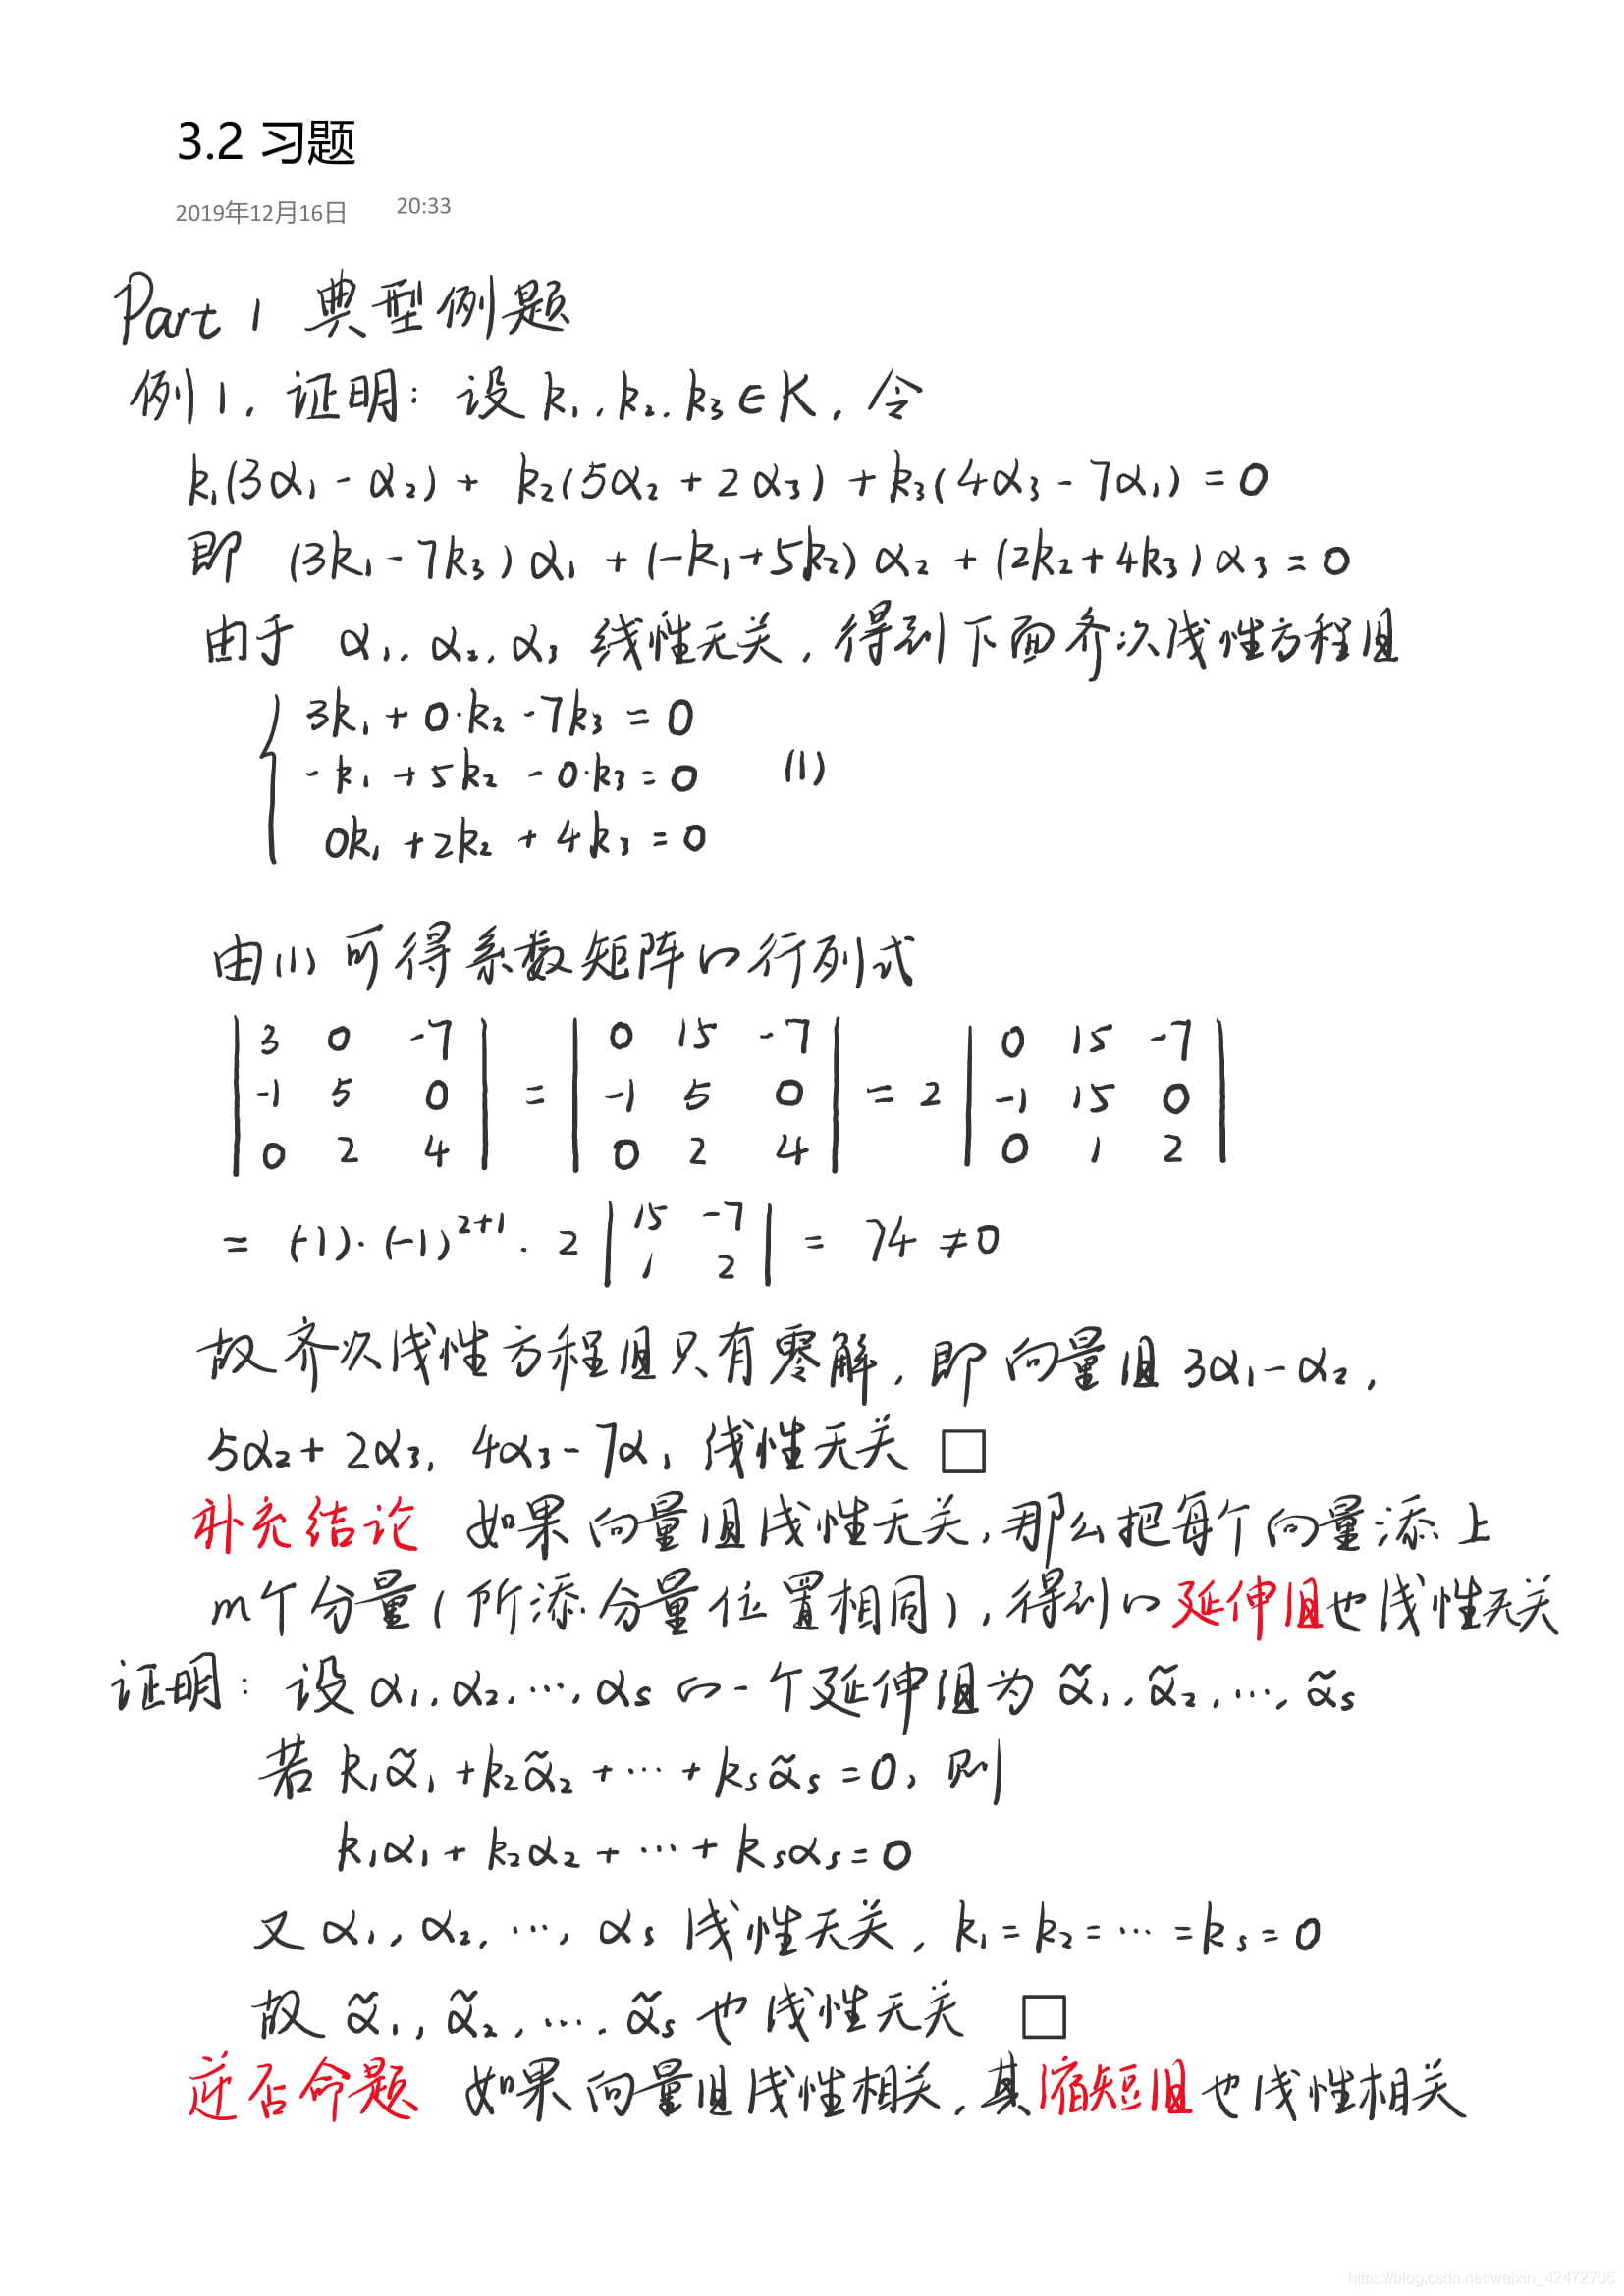 3.2 习题
2019年12月16日 20:33
Part 1 典型例题
例1. 证明: 设 k₁, k₂, k₃ ∈ K, 令
k₁(3α₁ - α₂) + k₂(5α₂ + 2α₃) + k₃(4α₃ - 7α₁) = 0
即 (3k₁ - 7k₃)α₁ + (-k₁ + 5k₂)α₂ + (2k₂ + 4k₃)α₃ = 0
由于 α₁, α₂, α₃ 线性无关, 得到下面齐次线性方程组
3k₁ + 0·k₂ - 7k₃ = 0
-k₁ + 5k₂ - 0·k₃ = 0 (1)
0k₁ + 2k₂ + 4k₃ = 0
由(1)可得系数矩阵的行列式
| 3 0 -7 | | 0 15 -7 | | 0 15 -7 |
| -1 5 0 | = | -1 5 0 | = 2 | -1 15 0 |
| 0 2 4 | | 0 2 4 | | 0 1 2 |
= (-1)·(-1)²⁺¹·2 | 15 -7 | = 74 ≠ 0
| 1 2 |
故齐次线性方程组只有零解, 即向量组 3α₁ - α₂,
5α₂ + 2α₃, 4α₃ - 7α₁ 线性无关 □
补充结论 如果向量组线性无关, 那么把每个向量添上
m个分量(所添分量位置相同), 得到的延伸组也线性无关
证明: 设 α₁, α₂, …, αs 的一个延伸组为 α̃₁, α̃₂, …, α̃s
若 k₁α̃₁ + k₂α̃₂ + … + ksα̃s = 0, 则
k₁α₁ + k₂α₂ + … + ksαs = 0
又 α₁, α₂, …, αs 线性无关, k₁ = k₂ = … = ks = 0
故 α̃₁, α̃₂, …, α̃s 也线性无关 □
逆否命题 如果向量组线性相关, 其缩短组也线性相关
https://blog.csdn.net/weixin_42472706